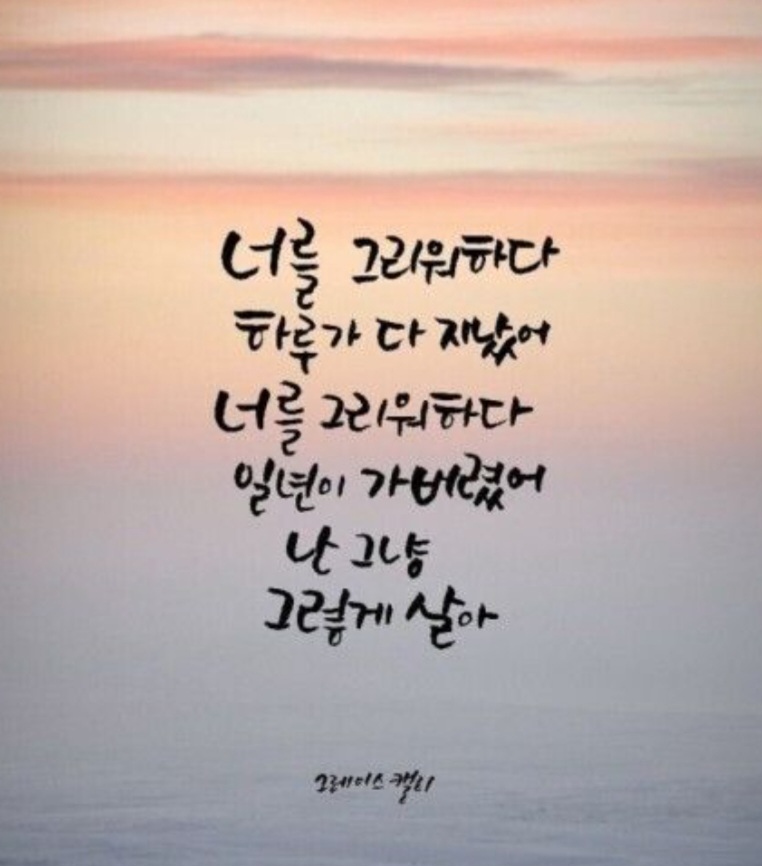 너를 그리워하다
하루가 다 지났어
너를 그리워하다
일년이 가버렸어
난 그냥
그렇게 살아
그레이스 캘리